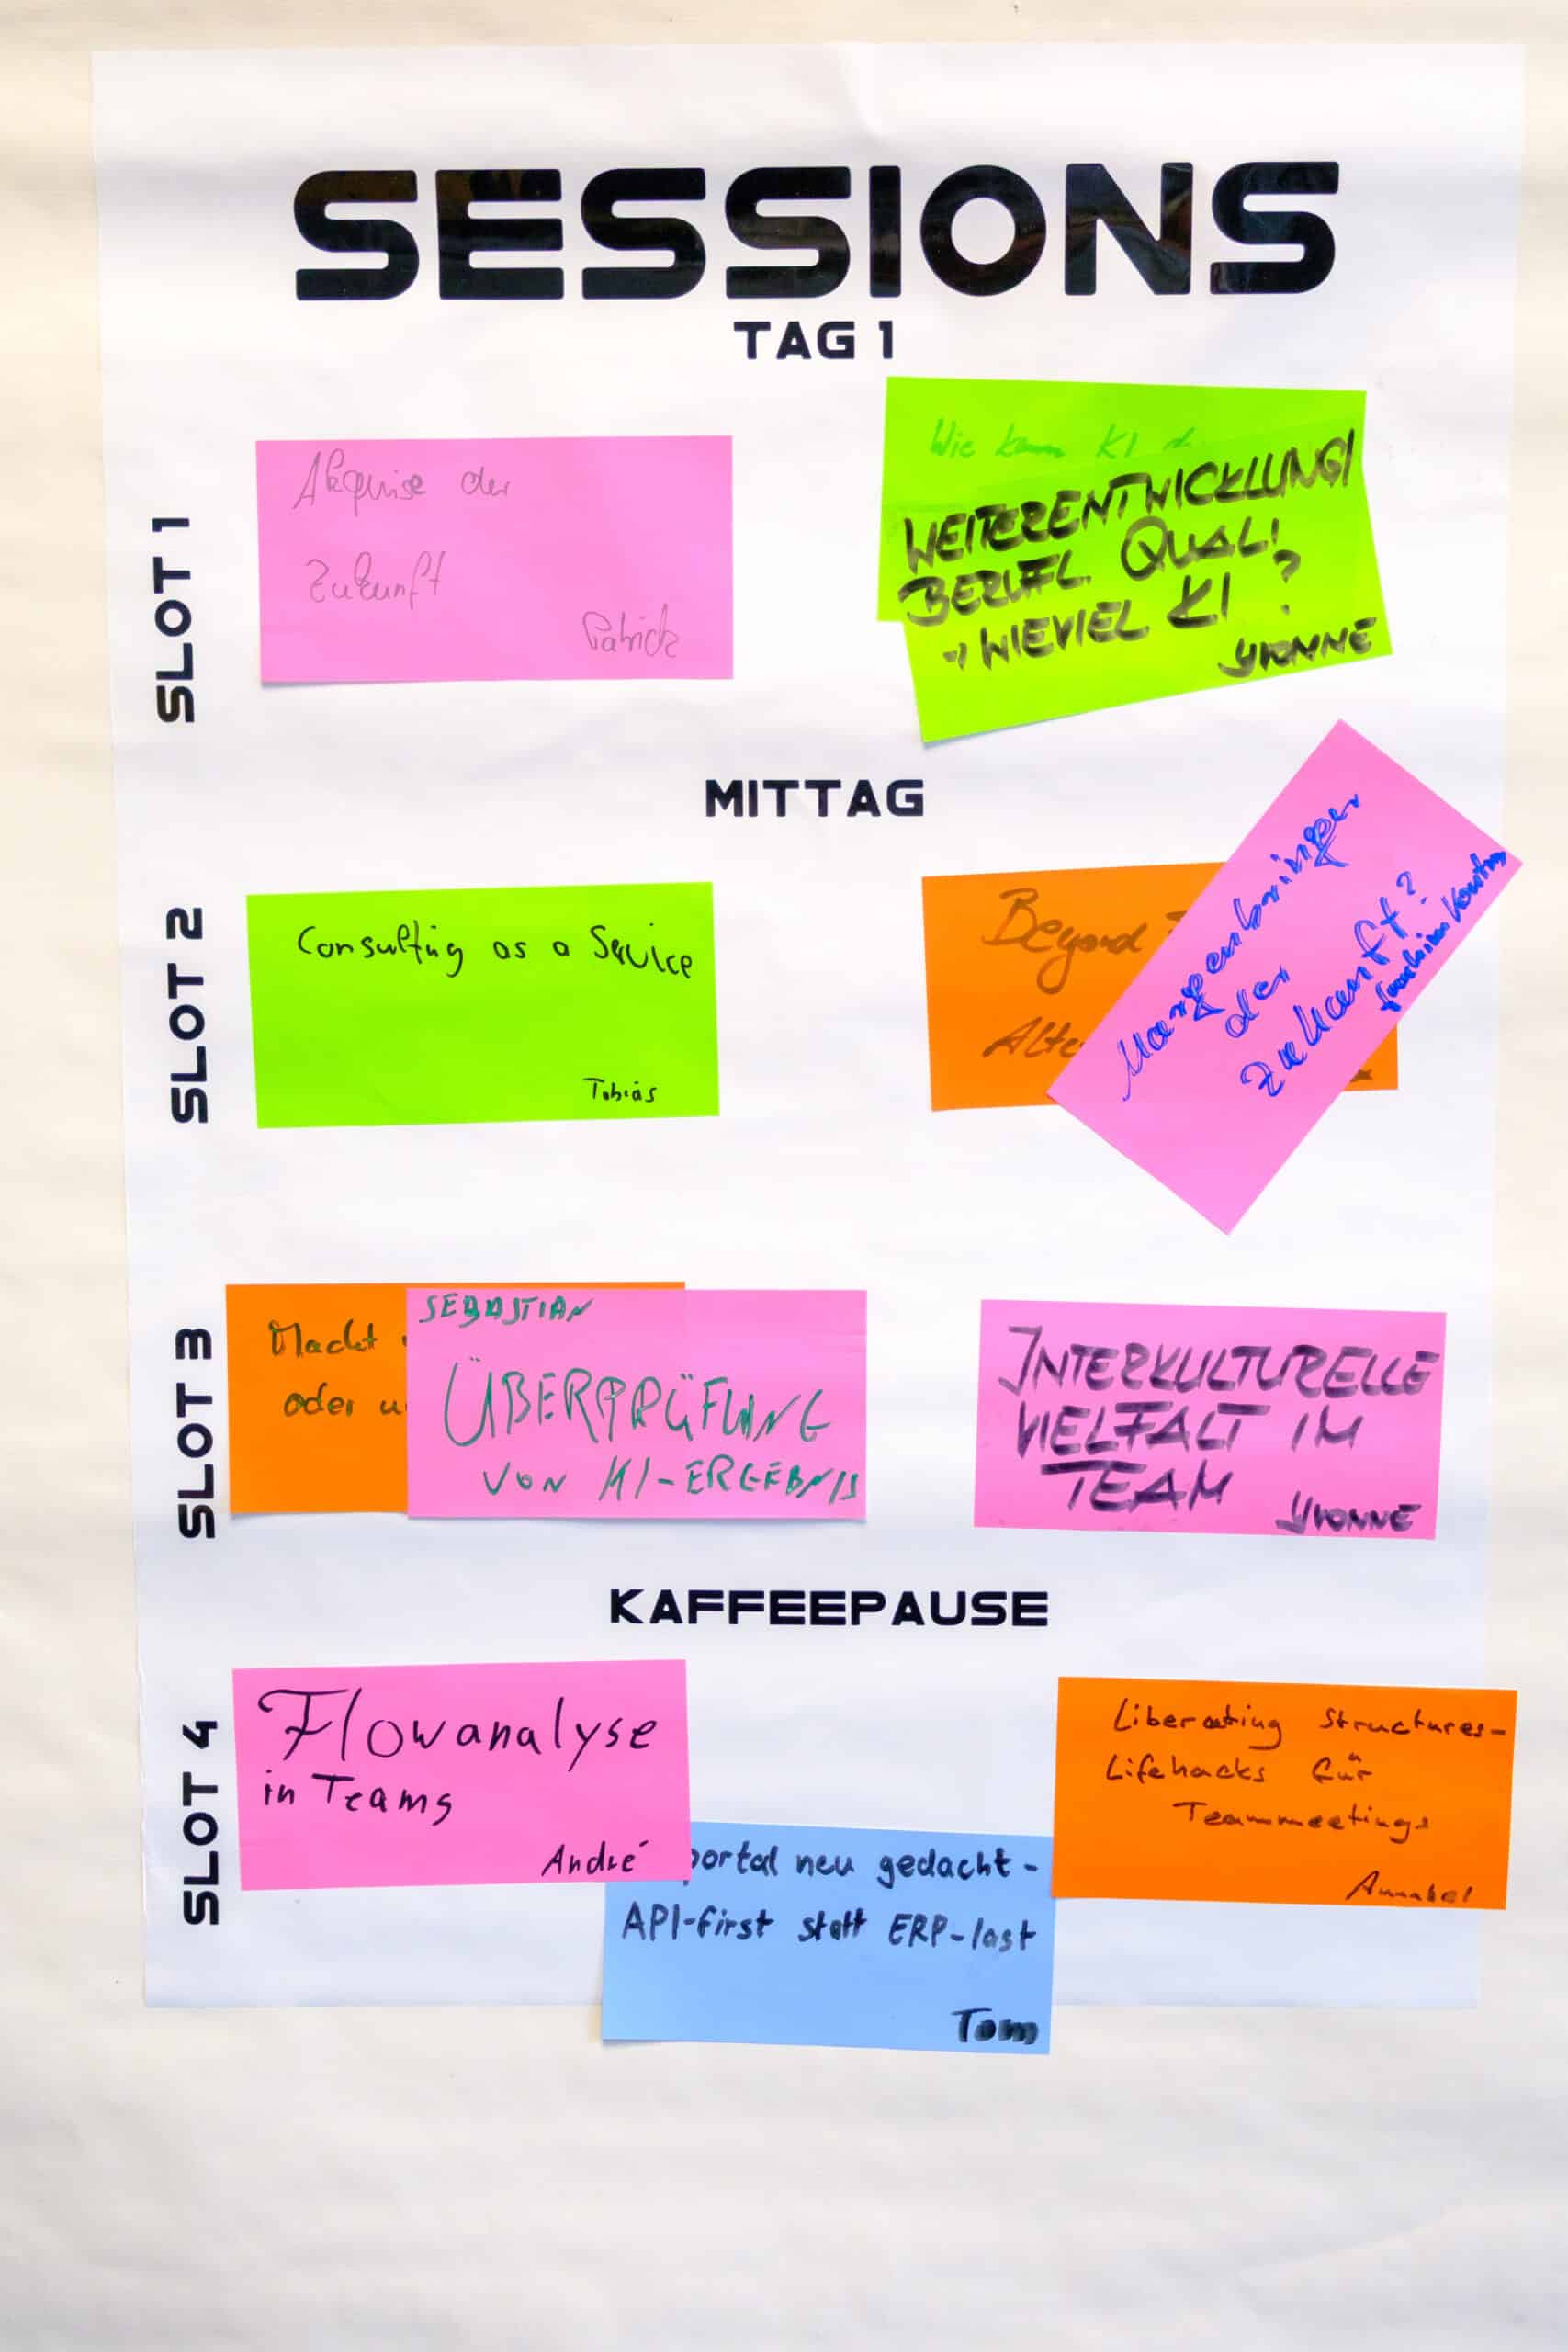 SESSIONS
TAG 1
SLOT 1
Akquise der
Zukunft
Patrick
Wie kann KI
WEITERENTWICKLUNG/
BERUFL. QUALI
→ WIEVIEL KI ?
YVONNE
MITTAG
SLOT 2
Consulting as a Service
Tobias
Beyond
Alte
Margenbringer
der
Zukunft?
SLOT 3
Macht
oder u
SEBASTIAN
ÜBERPRÜFUNG
VON KI-ERGEBNIS
INTERKULTURELLE
VIELFALT IM
TEAM
YVONNE
KAFFEEPAUSE
SLOT 4
Flowanalyse
in Teams
André
portal neu gedacht -
API-first statt ERP-last
Tom
Liberating Structures-
Lifehacks für
Teammeetings
Annabel